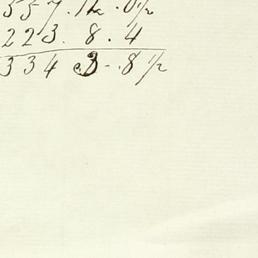 557.12.0½
223.8.4
334 3-.8½